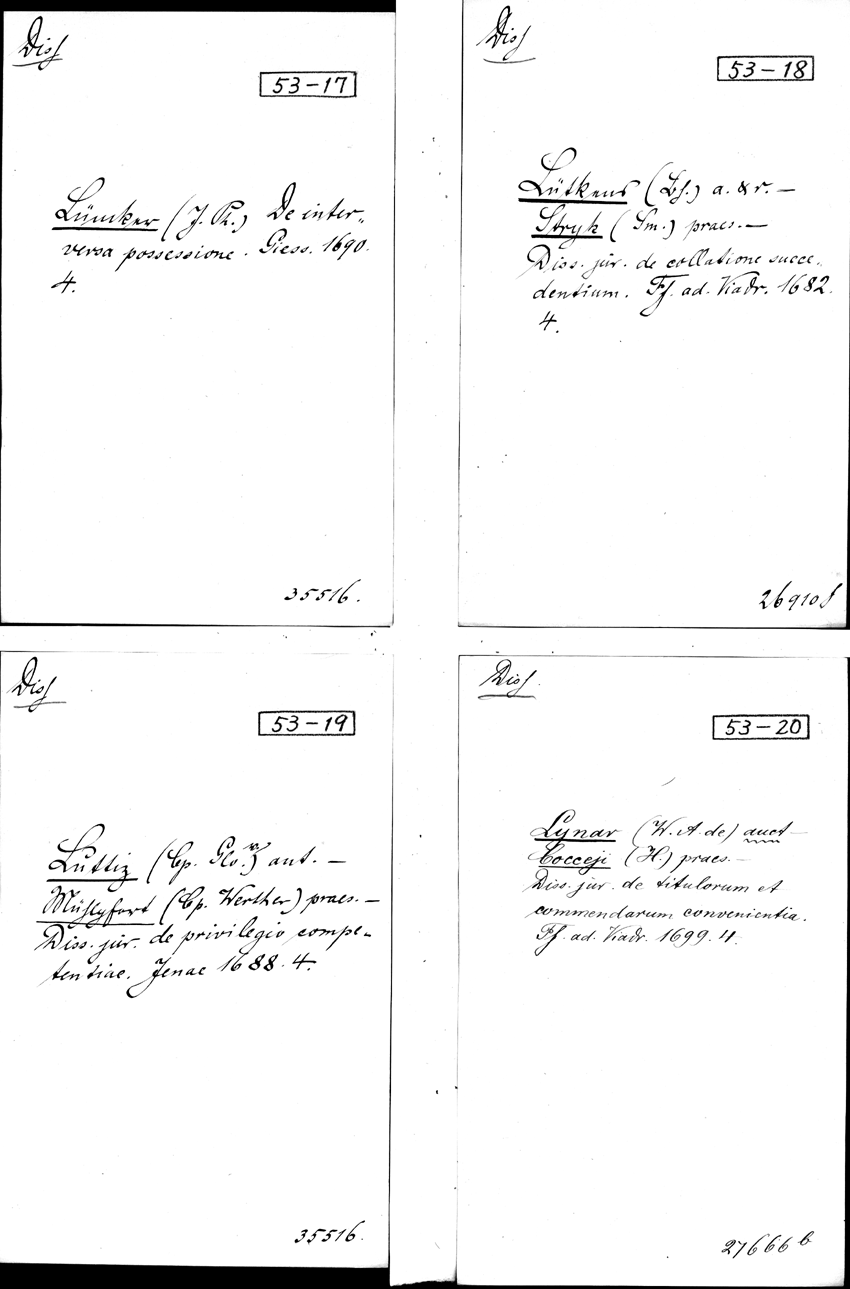 Diss
53-17
Lümker (J. Ph.) De inter-
versa possessione. Giess. 1690.
4.
35516.
Diss
53-18
Lütkens (Bh.) a. & r. —
Stryk (Sm.) praes. —
Diss. jur. de collatione succe-
dentium. Ff. ad. Viadr. 1682.
4.
26910 f
Diss
53-19
Luttiz (Cp. Glo. v.) aut. —
Mühlpfort (Cp. Werther) praes. —
Diss. jur. de privilegio compe-
tentiae. Jenae 1688. 4.
35516.
Diss.
53-20
Lynar (W. A. de) auct —
Cocceji (H.) praes. —
Diss. jur. de titulorum et
commendarum convenientia.
Ff. ad. Viadr. 1699. 4.
27666 b